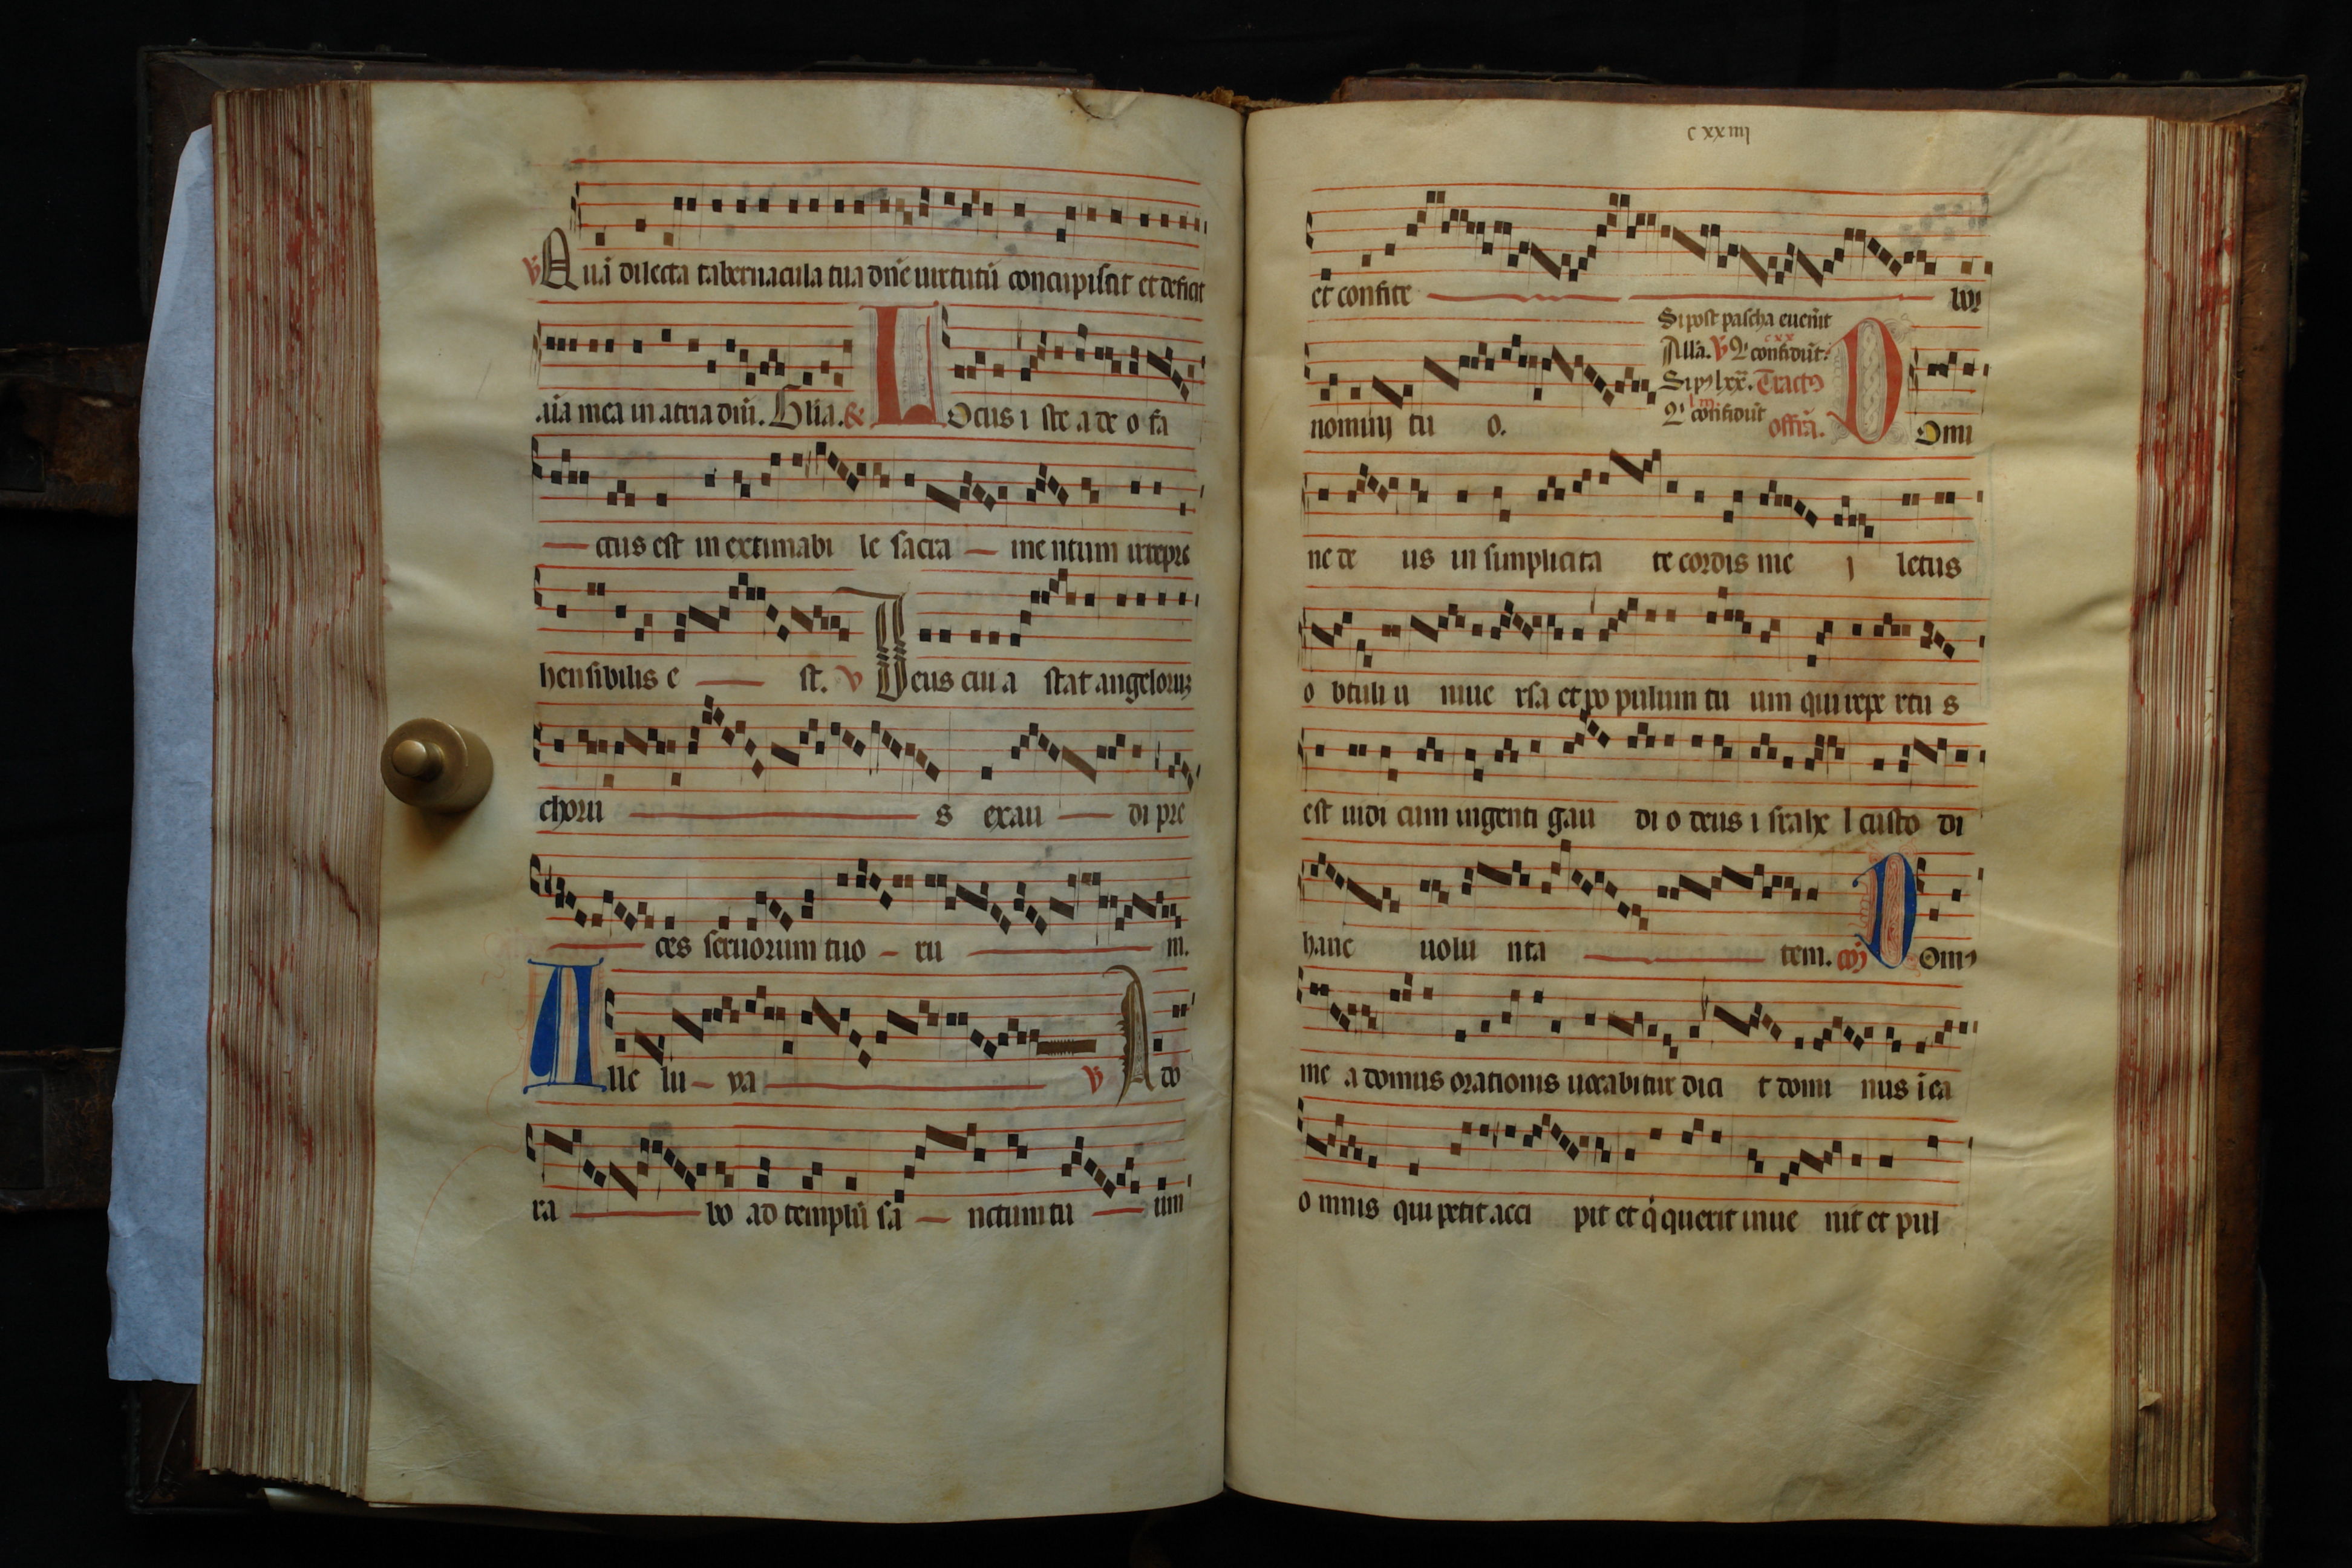 ℣ Quā dilecta tabernacula tua dn̄e uirtutū concupiscit et deficit
aīa mea in atria dn̄i. Glīa. & Locus i ste a de o fa
ctus est in extimabi le sacra me ntum irrepre
hensibilis e st. ℣ Deus cui a stat angelorum
choru s exau di pre
ces seruorum tuo ru m.
Alle lu ya ℣ A do
ra bo ad templū sā nctum tu um
cxxiiij
et confite bor
nomini tu o.
Si post pascha euenit
Allā. ℣ Qͥ confidūt.
cxx
Si in lxx. Tractꝰ
lm
Qͥ confidūt offīa. Domi
ne de us in simplicita te cordis me i letus
o btuli u niue rsa et po pulum tu um qui repe rtu s
est uidi cum ingenti gau di o deus i srahe l custo di
hanc uolu nta tem. cōı Domꝰ
me a domus orationis uocabitur dici t domi nus ī ea
o mnis qui petit acci pit et q̇ querit inue nit et pul